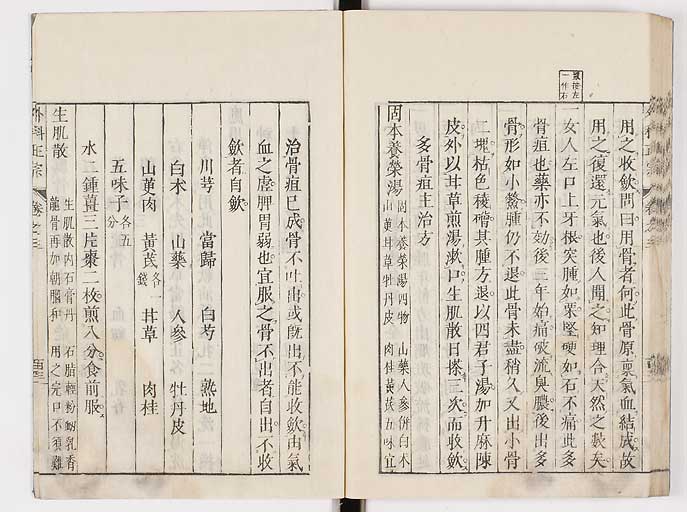 用之收斂問曰用骨者何此骨原稟氣血結成故
用之復還元氣也後人聞之知理合天然之數矣
一女人左口上牙根突腫如栗堅硬如石不痛此多
骨疽也藥亦不効後三年始痛破流臭膿後出多
骨形如小鰲腫仍不退此骨未盡稍久又出小骨
二塊枯色稜𥕥其腫方退以四君子湯如升麻陳
皮外以甘草煎湯漱口生肌散日搽三次而收斂
多骨疽主治方
固本養榮湯
固本養榮湯四物 山藥人參併白术
山茱甘草牡丹皮 肉桂黃芪五味宜
治骨疽已成骨不吐出或既出不能收斂由氣
血之虛脾胃弱也宜服之骨不出者自出不收
斂者自斂
川芎 當歸 白芍 熟地
白术 山藥 人參 牡丹皮
山茱肉 黃芪各一錢 甘草 肉桂
五味子各五分
水二鍾薑三片棗二枚煎八分食前服
生肌散
生肌散內石膏丹 石脂輕粉乳香
龍骨再加朝腦和 用之完口不須難
外科正宗 卷之三